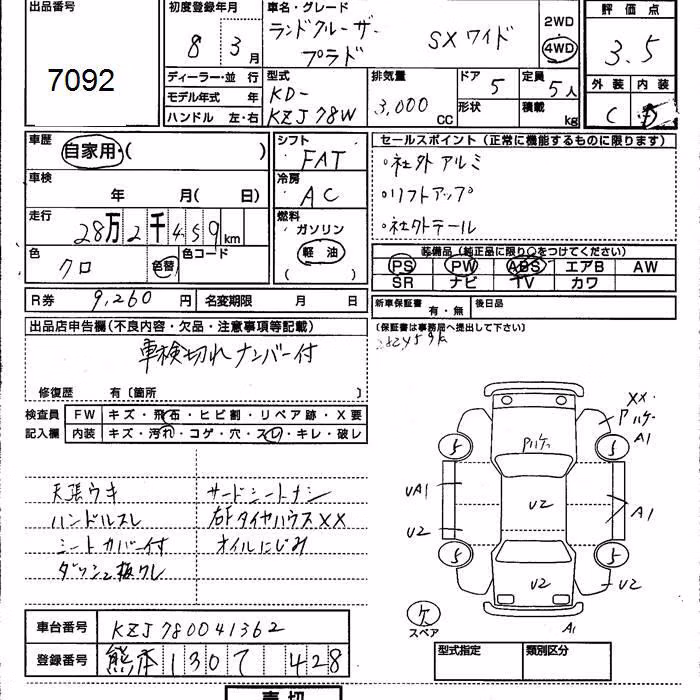 出品番号
7092
初度登録年月
8年 3月
車名・グレード
ランドクルーザー
プラド
SXワイド
2WD
4WD
評価点
3.5
外装 内装
C D
ディーラー・並行
モデル年式 年
ハンドル 左・右
型式
KD-
KZJ78W
排気量
3,000 CC
ドア
5
形状
定員
5人
積載
kg
車歴
自家用・( )
車検
年 月( 日)
走行
28万2千459km
色
クロ
色替
色コード
シフト
FAT
冷房
AC
燃料
ガソリン
軽油
( )
セールスポイント (正常に機能するものに限ります)
○社外アルミ
○リフトアップ
○社外テール
装備品(純正品に限り○をつけてください)
PS PW ABS エアB AW
SR ナビ TV カワ
R券 9,260円 名変期限 月 日
新車保証書 有・無 後日品
(保証書は事務局へ提出して下さい)
出品店申告欄(不良内容・欠品・注意事項等記載)
車検切れナンバー付
修復歴 有〔箇所 〕
検査員
記入欄
FW キズ・飛石・ヒビ割・リペア跡・X要
内装 キズ・汚れ・コゲ・穴・スレ・キレ・破レ
天張ウキ
ハンドルスレ
シートカバー付
ダッシュ板ワレ
サードシートナシ
右Fタイヤハウス××
オイルにじみ
××・
Pハゲ・
A1
Pハゲ
5 5
UA1
U2
U2
A1
5 5
U2
U2
A1
ケ
スペア
車台番号 KZJ780041362
登録番号 熊本1307 428
型式指定 類別区分
売切